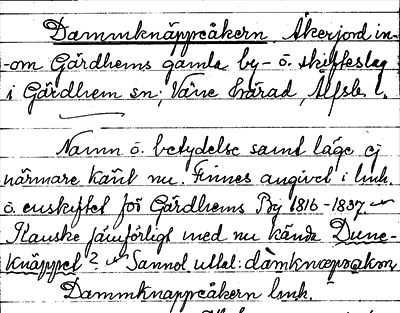 Dammknäppeåkern. Åkerjord in-
-om Gärdhems gamla by- o. skifteslag
i Gärdhem sn; Väne härad, Älfsb. l.
Namn o. betydelse samt läge ej
närmare känt nu. Finnes angivet i lmh.
o. enskiftet för Gärdhems By 1816-1837.
Kanske jämförligt med nu kända Dune-
knäppet? Sannol uttel:
Dammknappeåkern lmh.